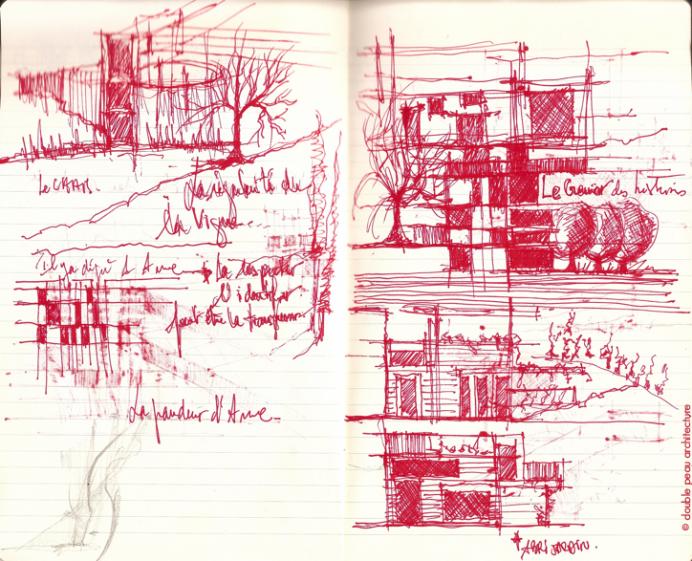 Le CHAIS.
La régularité de
la Vigne...
Il y a déjà l'Ame
la respecter
l'identifier
peut être la transformer
d'Ame
Le Grenier des histoires
* ABRI JARDIN.
© double peau architecture